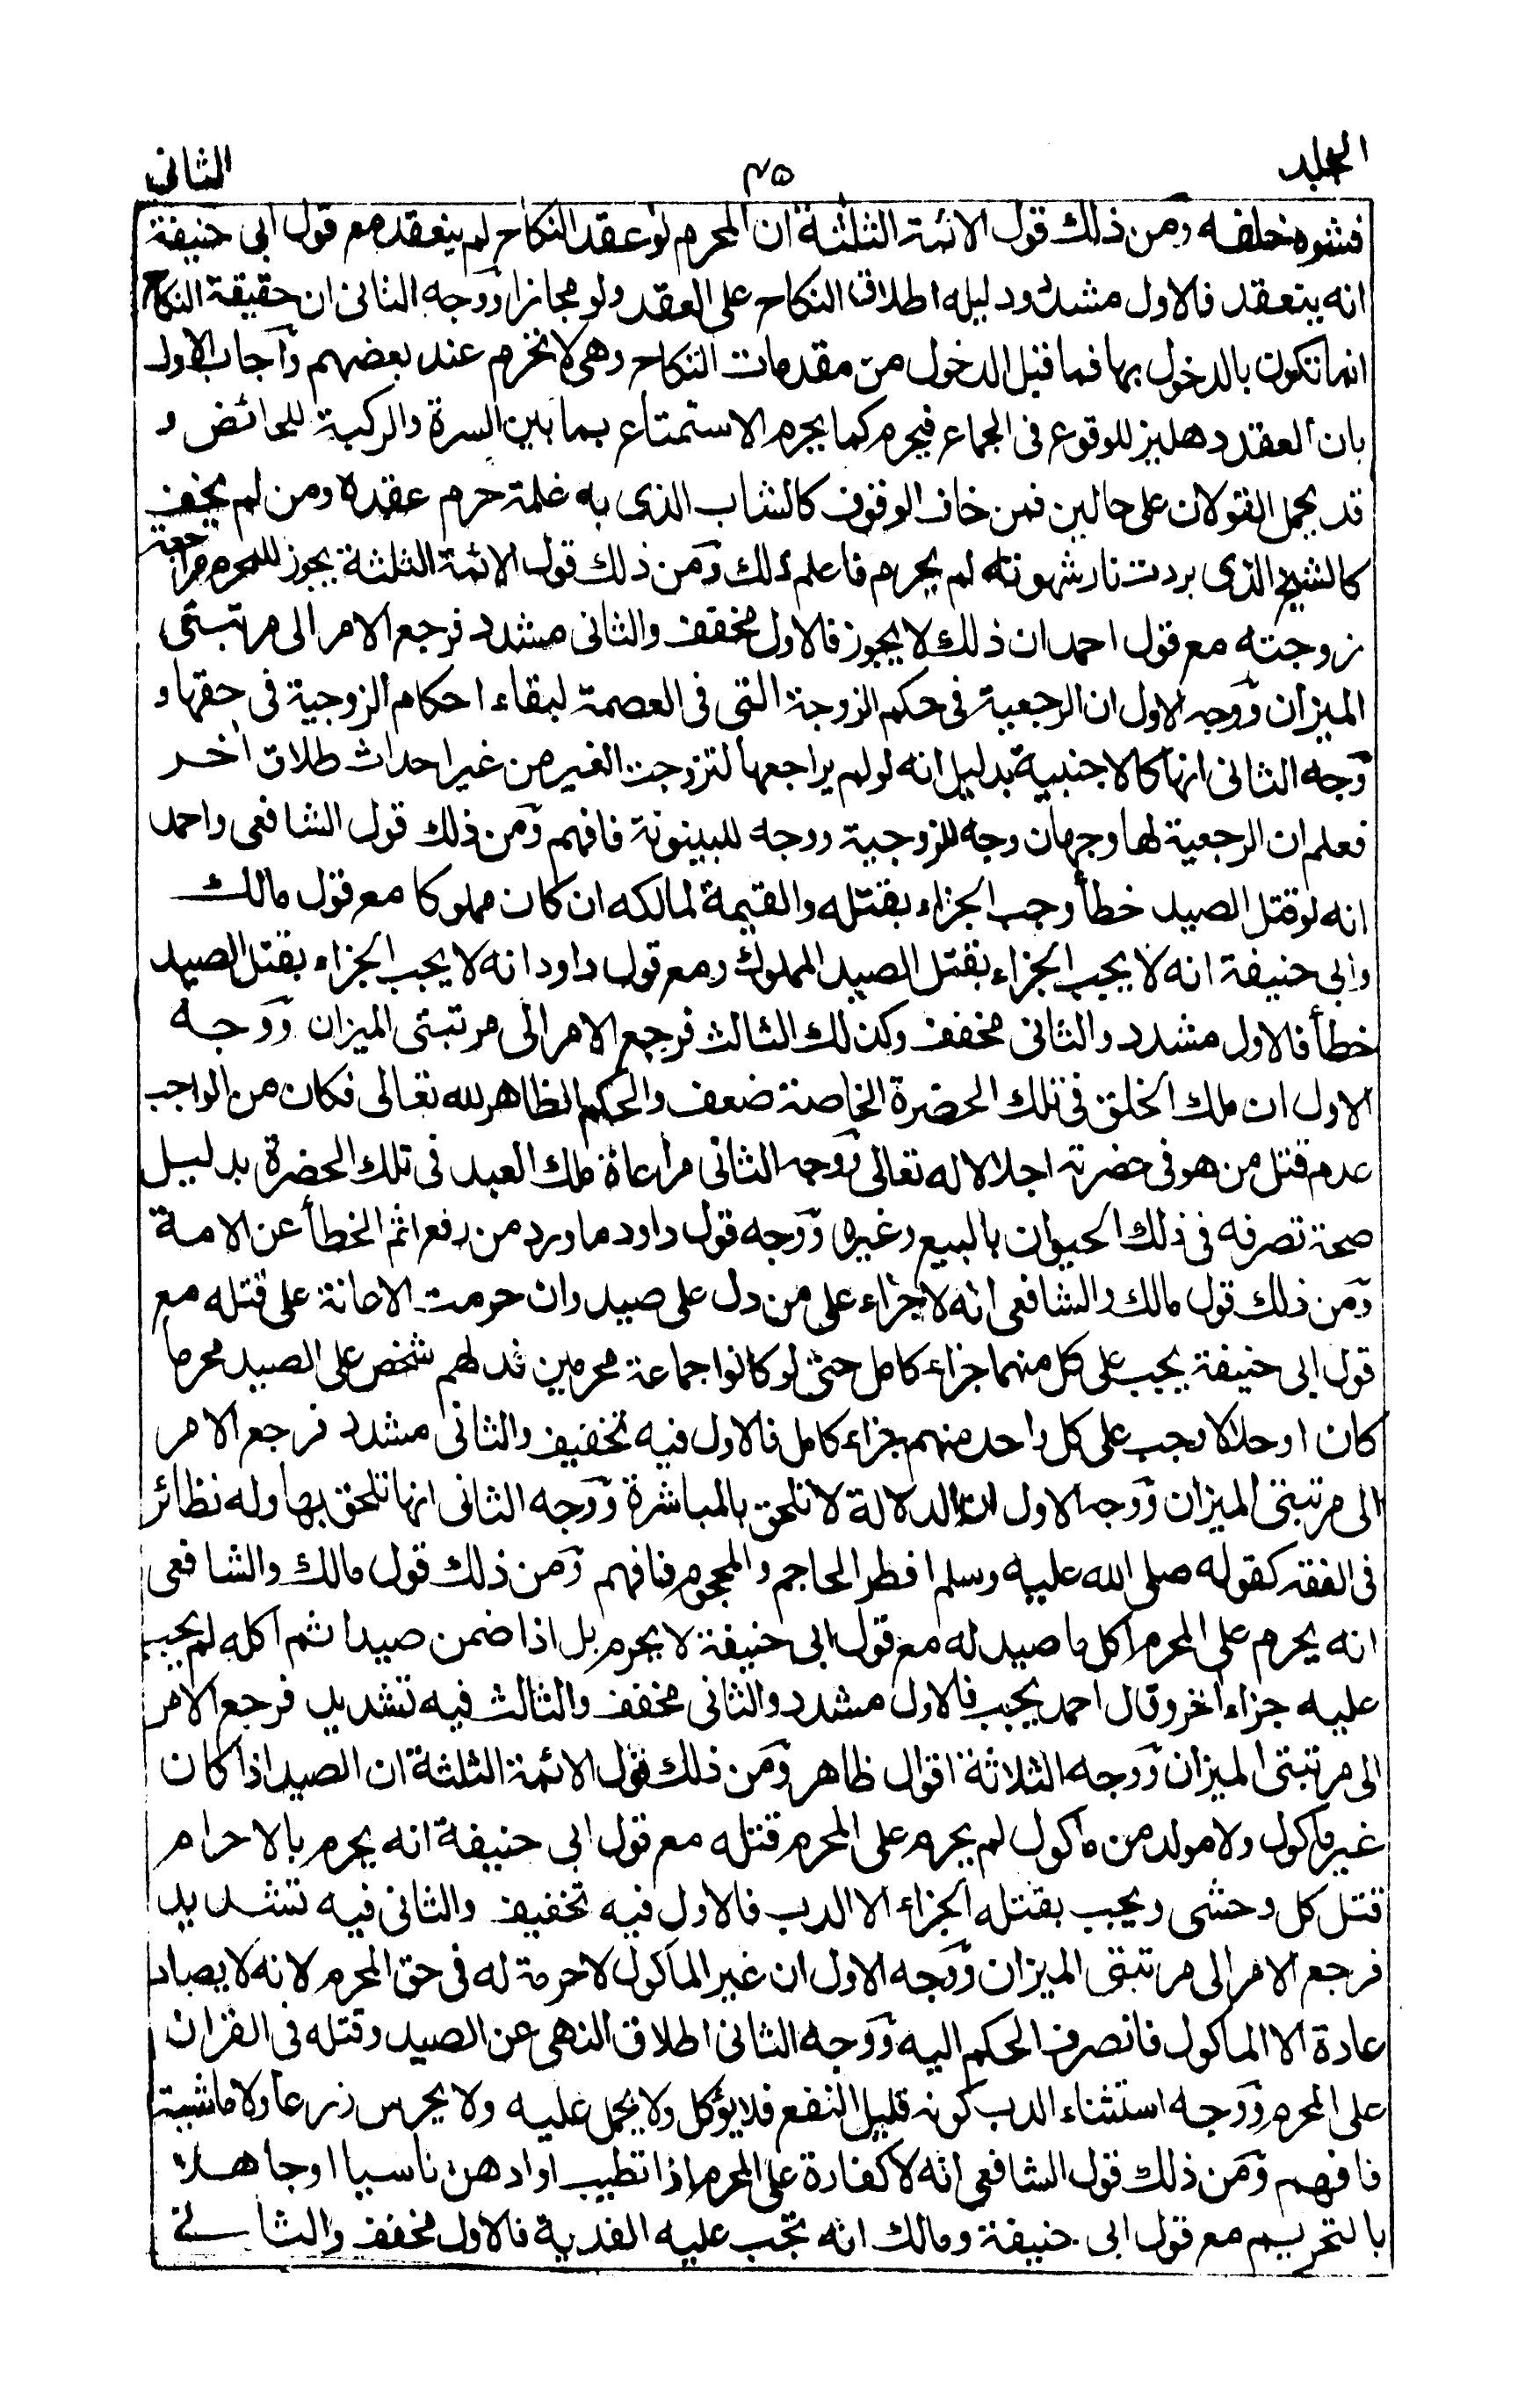 المجلد ۴۵ الثانى
فشوه خلقه ومن ذلك قول الائمة الثلثة ان المحرم لو عقد النكاح لم ينعقد مع قول ابى حنيفة
انه ينعقد فالاول مشدد ودليله اطلاق النكاح على العقد ولو مجازا ووجه الثانى ان حقيقة النكاح
انما تكون بالدخول بها فما قبل الدخول من مقدمات النكاح وهى لا تحرم عند بعضهم وآجاب الاول
بان العقد دهليز للوقوع فى الجماع فيحرم كما يحرم الاستمتاع بما بين السرة والركبة للحائض و
قد يحمل القولان على حالين فمن خاف الوقوف كالشاب الذى به غلمة حرم عقده ومن لم يخف
كالشيخ الذى بردت نار شهوته لم يحرم فاعلم ذلك ومن ذلك قول الائمة الثلثة يجوز للمحرم مراجعة
زوجته مع قول احمد ان ذلك لا يجوز فالاول مخفف والثانى مشدد فرجع الامر الى مرتبتى
الميزان ووجه الاول ان الرجعية فى حكم الزوجة التى فى العصمة لبقاء احكام الزوجية فى حقها و
وجه الثانى انها كالاجنبية بدليل انه لو لم يراجعها لتزوجت الغير من غير احداث طلاق اخر
فعلم ان الرجعية لها وجهان وجه للزوجية ووجه للبينونة فافهم ومن ذلك قول الشافعى واحمد
انه لو قتل الصيد خطأ وجب الجزاء بقتله والقيمة لمالكه ان كان مملوكا مع قول مالك
وابى حنيفة انه لا يجب الجزاء بقتل الصيد المملوك ومع قول داود انه لا يجب الجزاء بقتل الصيد
خطأ فالاول مشدد والثانى مخفف وكذلك الثالث فرجع الامر الى مرتبتى الميزان ووجه
الاول ان ملك الخلق فى تلك الحضرة الخاصة ضعف والحكم الظاهر لله تعالى فكان من الواجب
عدم قتل من هو فى حضرته اجلالا له تعالى ووجه الثانى مراعاة ملك العبد فى تلك الحضرة بدليل
صحة تصرفه فى ذلك الحيوان بالبيع وغيره ووجه قول داود ما ورد من رفع اثم الخطأ عن الامة
ومن ذلك قول مالك والشافعى انه لا جزاء على من دل على صيد وان حرمت الاعانة على قتله مع
قول ابى حنيفة يجب على كل منهما جزاء كامل حتى لو كانوا جماعة محرمين فدلهم شخص على الصيد محرما
كان او حلالا وجب على كل واحد منهم جزاء كامل فالاول فيه تخفيف والثانى مشدد فرجع الامر
الى مرتبتى الميزان ووجه الاول ان الدلالة لا تلحق بالمباشرة ووجه الثانى انها تلحق بها وله نظائر
فى الفقه كقوله صلى الله عليه وسلم افطر الحاجم والمحجوم فافهم ومن ذلك قول مالك والشافعى
انه يحرم على المحرم اكل ما صيد له مع قول ابى حنيفة لا يحرم بل اذا ضمن صيدا ثم اكله لم يجب
عليه جزاء اخر وقال احمد يجب فالاول مشدد والثانى مخفف والثالث فيه تشديد فرجع الامر
الى مرتبتى الميزان ووجه الثلاثة اقوال ظاهر ومن ذلك قول الائمة الثلثة ان الصيد اذا كان
غير مأكول ولا مولد من مأكول لم يحرم على المحرم قتله مع قول ابى حنيفة انه يحرم بالاحرام
قتل كل وحشى ويجب بقتله الجزاء الا الدب فالاول فيه تخفيف والثانى فيه تشديد
فرجع الامر الى مرتبتى الميزان ووجه الاول ان غير المأكول لا حرمة له فى حق المحرم لانه لا يصاد
عادة الا المأكول فانصرف الحكم اليه ووجه الثانى اطلاق النهى عن الصيد وقتله فى القرآن
على المحرم ووجه استثناء الدب كونه قليل النفع فلا يؤكل ولا يحمل عليه ولا يحرس زرعا ولا ماشية
فافهم ومن ذلك قول الشافعى انه لا كفارة على المحرم اذا تطيب او ادهن ناسيا او جاهلا
بالتحريم مع قول ابى حنيفة ومالك انه تجب عليه الفدية فالاول مخفف والثانى